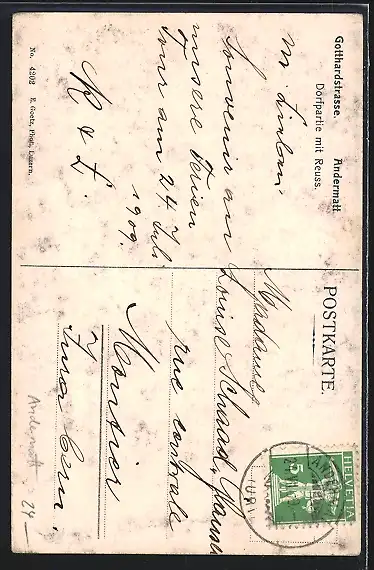 Gotthardstrasse. Andermatt.
Dörfpartie mit Reuss.
Souvenir an
unsere Ferien
Tour am 24 Juli
1909.
R & L.
No. 4202 E. Goetz, Phot., Luzern.
POSTKARTE.
HELVETIA
5
Louise Schaad,
rue centrale
Moutier
Jura bern.
Andermatt
24